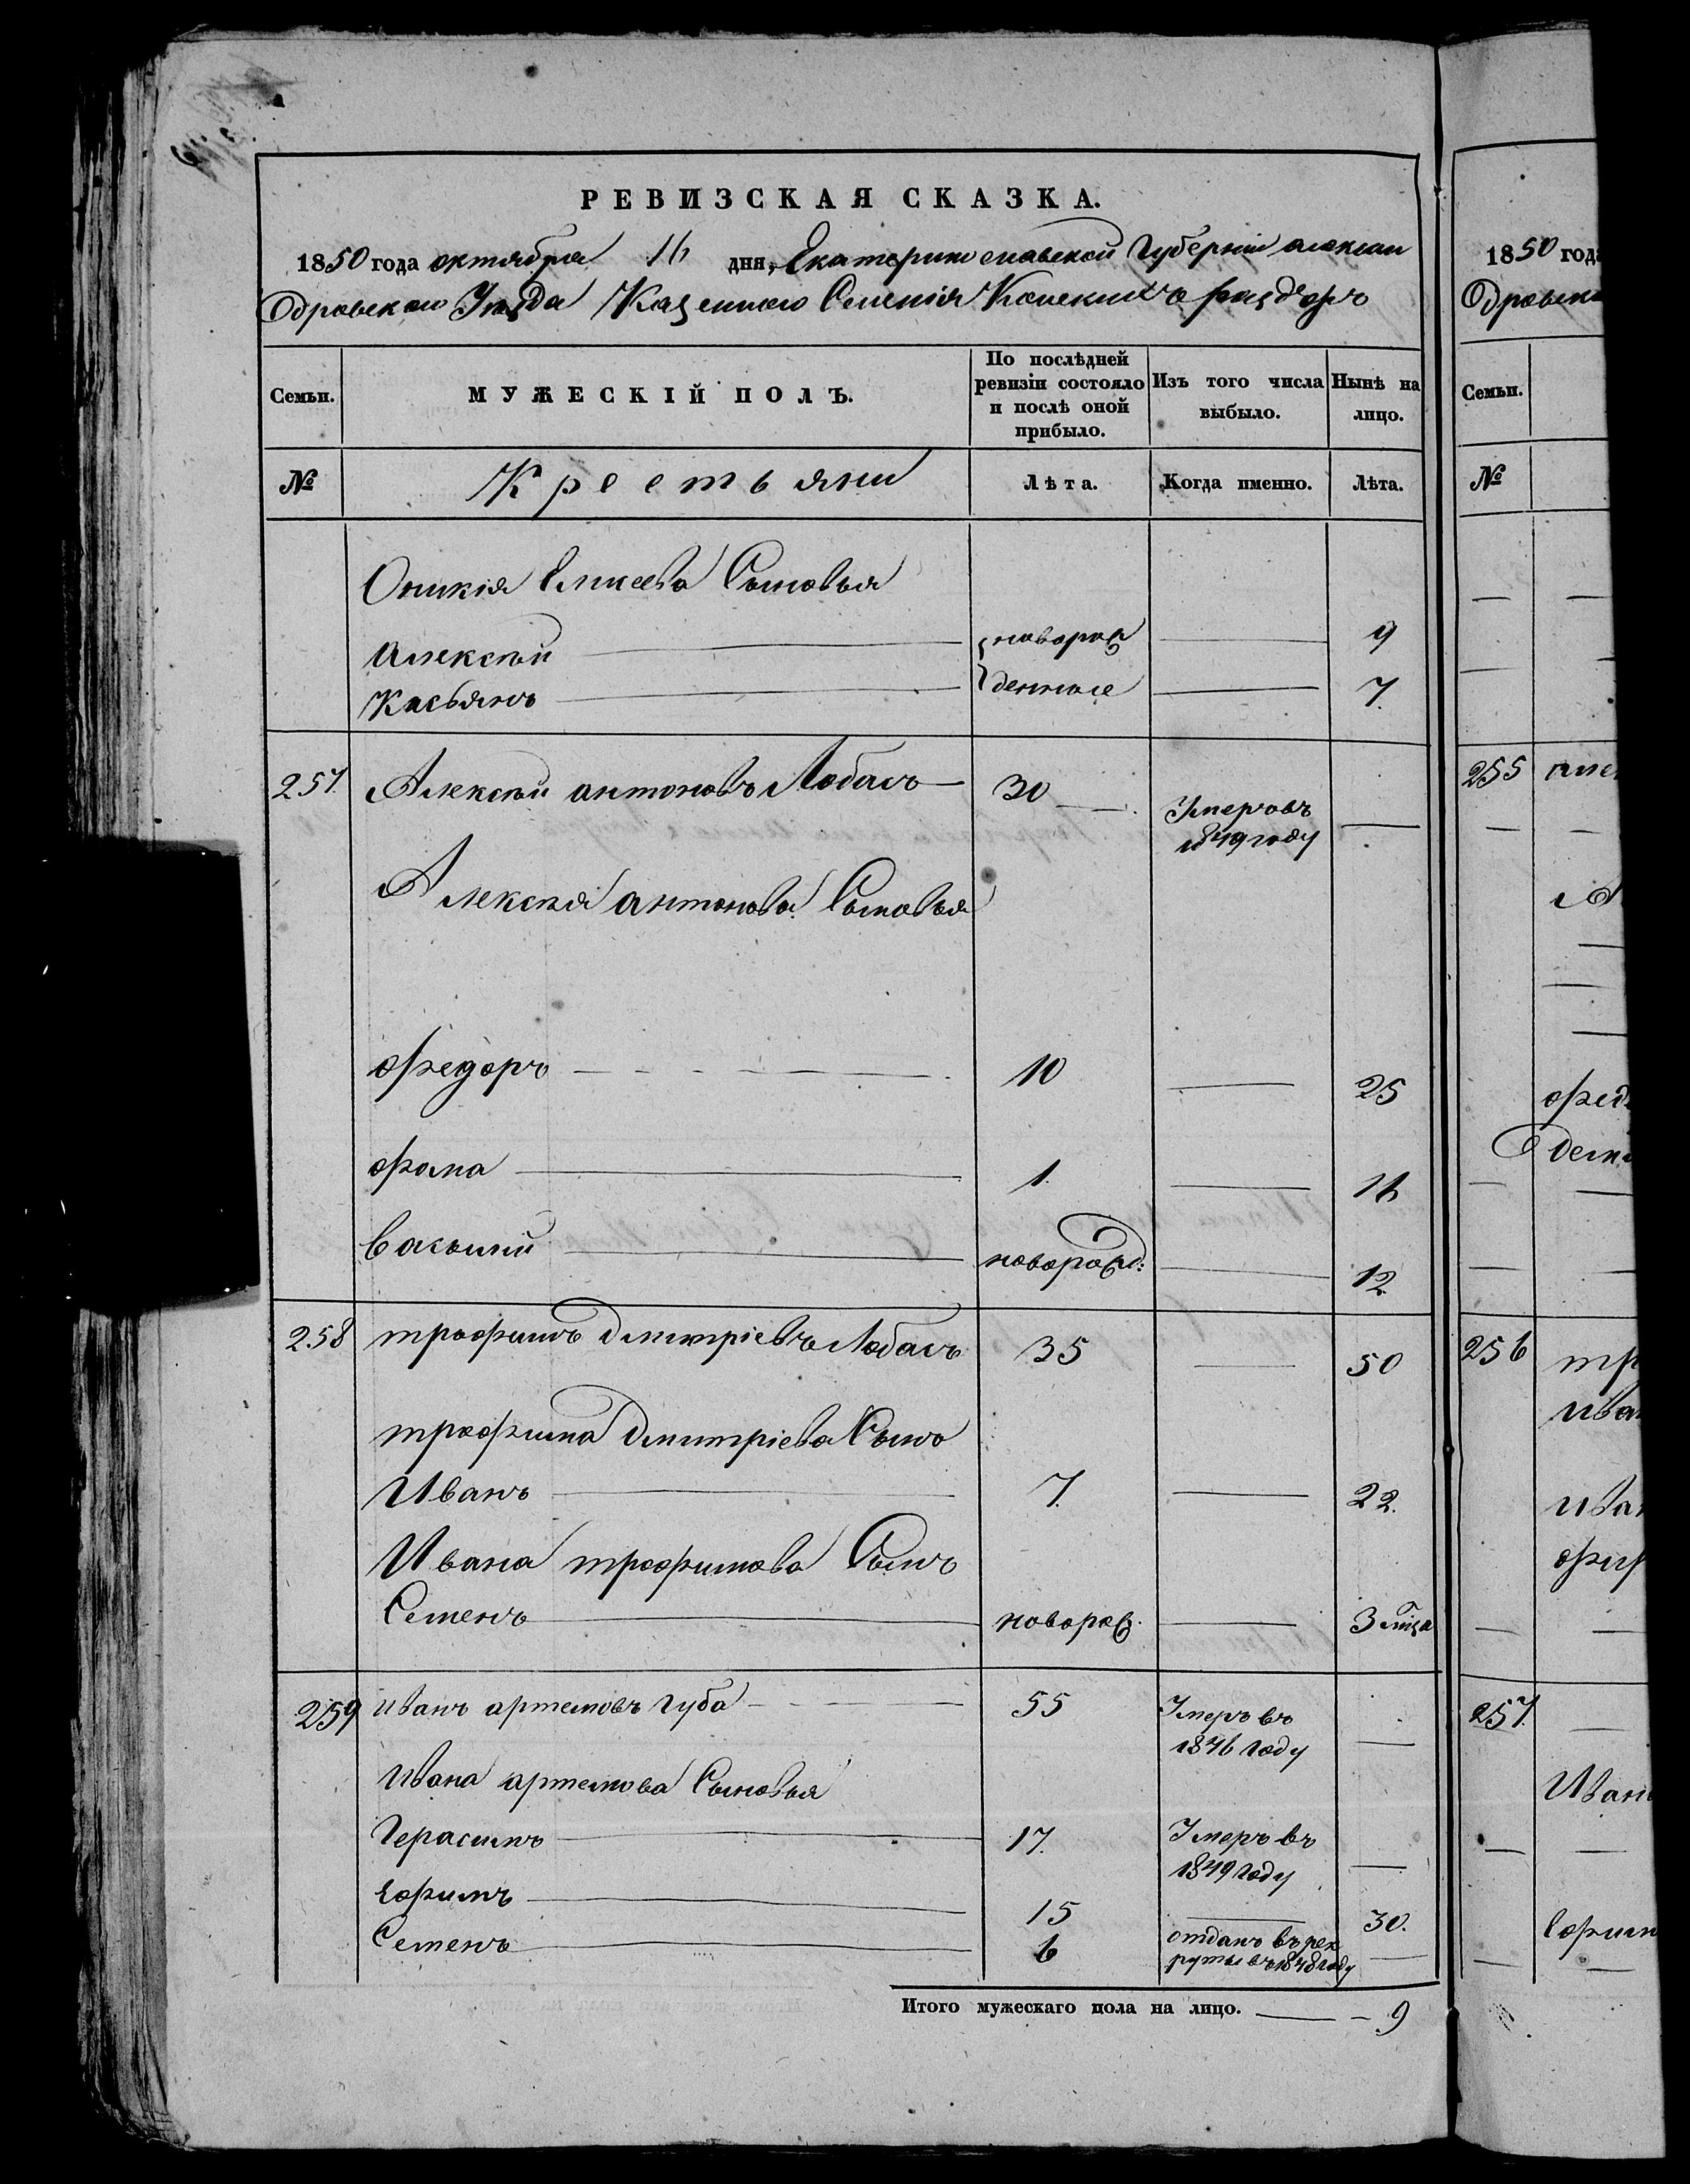 РЕВИЗСКАЯ СКАЗКА.
1850 года октября 16 дня, Екатеринославской Губерніи алексан
дровскаго Уѣзда Казеннаго Селенія Конскихъ раздоръ
Семьи. МУЖЕСКІЙ ПОЛЪ. По послѣдней ревизіи состояло и послѣ оной прибыло. Изъ того числа выбыло. Нынѣ на лицо.
№ Крестьяни Лѣта. Когда именно. Лѣта.
Оникія Елисеева Сыновья
Алексѣй новорож 9
Касьянъ денные 7.
257. Алексѣй антоновъ Лобасъ 30 Умеръ въ
1849 году
Алексѣя антонова Сыновья
Федоръ 10 25
Фома 1. 16
Василий новорожд: 12
258 трофимъ дмитріевъ Лобасъ 35 50
трофима дмитріева Сынъ
Иванъ 7. 22.
Ивана трофимова Сынъ
Семенъ новорож. 3 мца
259 Иванъ артемовъ Губа 55 Умеръ въ
1846 году
Ивана артемова Сыновья
Герасимъ 17. Умеръ въ
1849 году
Ефимъ 15 30.
Семенъ 6 отданъ въ рек
руты въ 1848 году
Итого мужескаго пола на лицо. 9
1850 года
дровска
Семьи.
№
255 але
А
Фед
256 тр
Ива
Ива
257.
Иван
Ефим